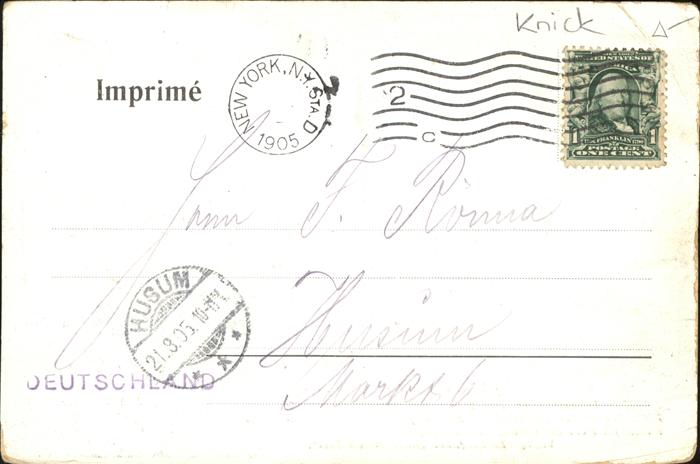 Knick
Imprimé
NEW YORK, N.Y. STA. D
1905
2
C
UNITED STATES OF
AMERICA
1 1
FRANKLIN
POSTAGE
ONE CENT
Herrn F. Rönna
Husum
Markt 6
HUSUM
21.8.05. 10-11V.
* * *
DEUTSCHLAND